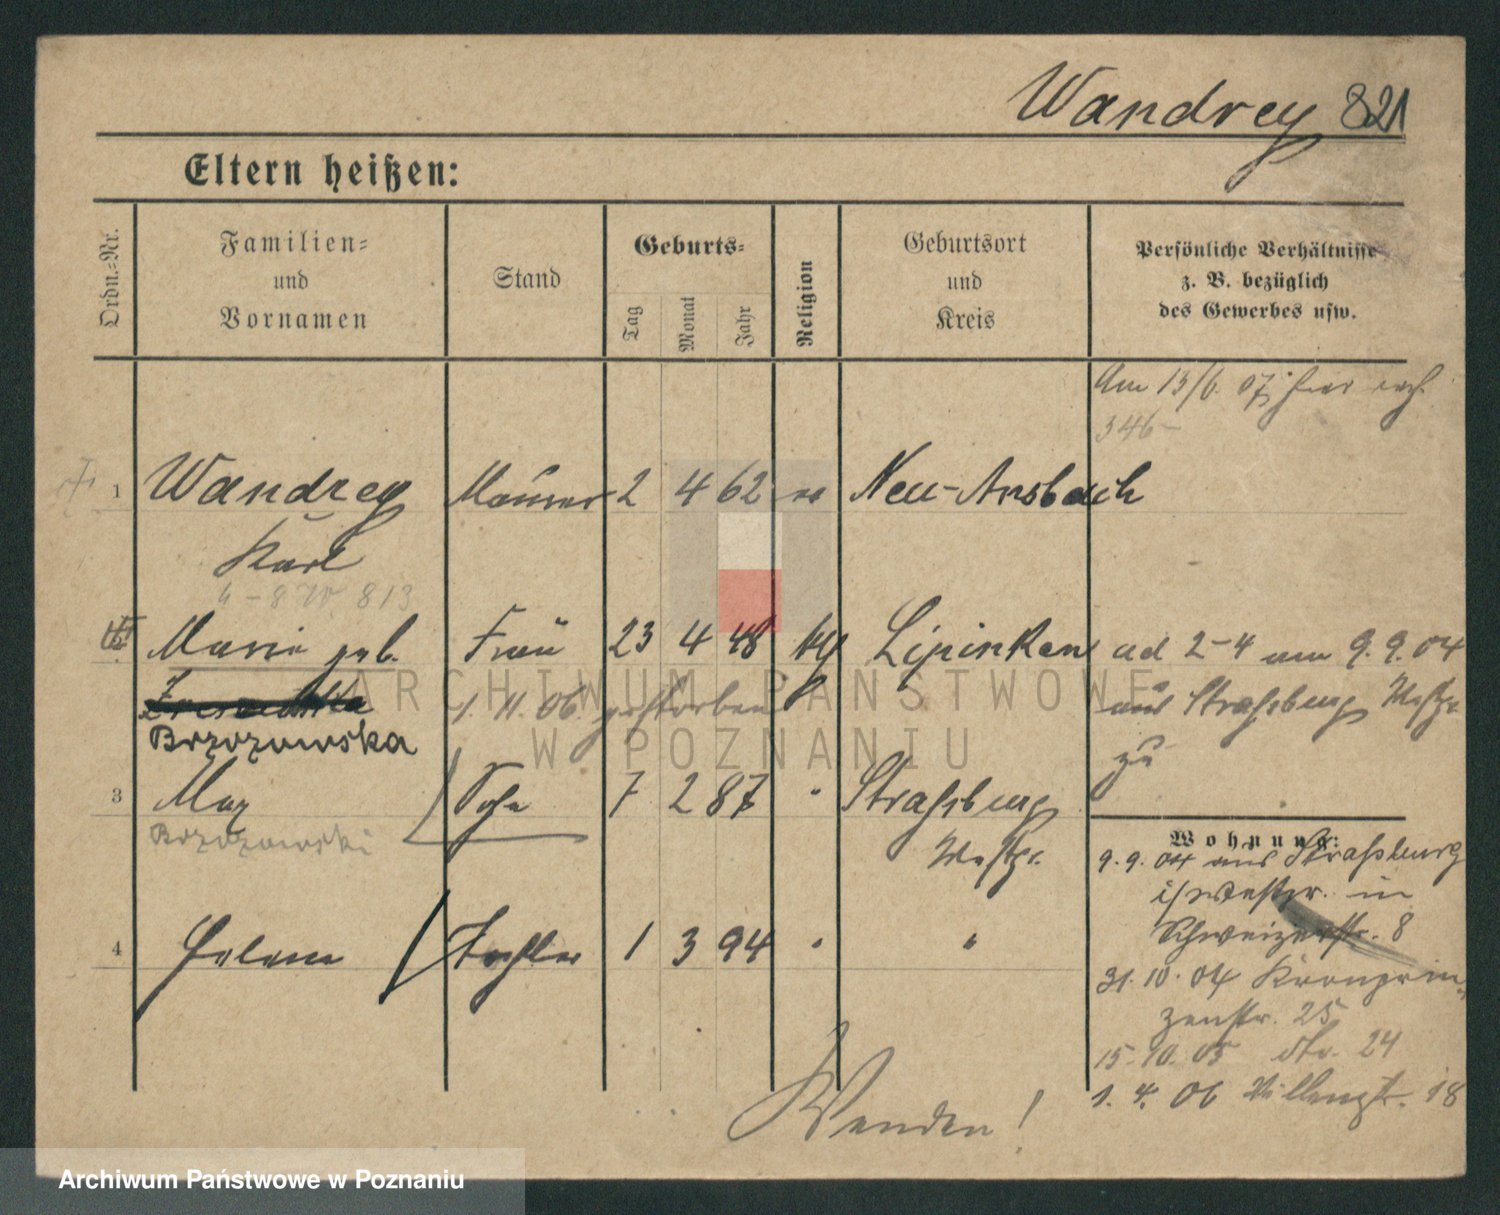 Wandrey 821
Eltern heißen:
Ordn.=Nr.
Familien=
und
Vornamen
Stand
Geburts=
Tag
Monat
Jahr
Religion
Geburtsort
und
Kreis
Persönliche Verhältnisse
z. B. bezüglich
des Gewerbes usw.
Am 13/6. 07
346-
1 Wandrey Maurer 2 4 62 Neu-Ansbach
Karl
Marie geb. Frau 23 4 48 Lipinken ad 2-4 am 9.9.04
1. 11. 06. gestorben aus Strasburg Westpr.
Brzozowska zu
3 Max Sohn 7 2 87 " Strasburg
Brzozowski Westpr.
4 Helene Tochter 1 3 94 " "
Wohnung:
9. 9. 04 aus Strasburg
i/Westpr. in
Schweizerstr. 8
31. 10. 04 Kronprin-
zenstr. 25
15. 10. 05 dto. 24
1. 4. 06 18
Wenden!
ARCHIWUM PAŃSTWOWE
W POZNANIU
Archiwum Państwowe w Poznaniu